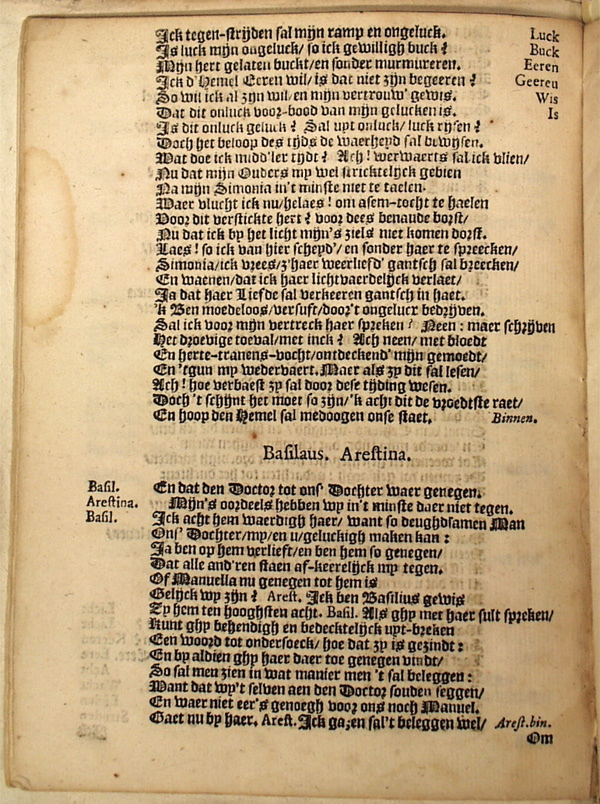 Ick tegen-strijden sal mijn ramp en ongeluck. Luck
Is luck mijn ongeluck/ so ick gewilligh buck? Buck
Mijn hert gelaten buckt/ en sonder murmureren. Eeren
Ick d'Hemel Eeren wil/ is dat niet zijn begeeren? Geeren
So wil ick al zijn wil/ en mijn vertrouw' gewis. Wis
Dat dit onluck voor-bood van mijn gelucken is. Is
Is dit onluck geluck? Sal uyt onluck/ luck rijsen?
Doch het beloop des tijds de waerheyd sal bewijsen.
Wat doe ick midd'ler tijdt? Ach! werwaerts sal ick vlien/
Nu dat mijn Ouders my wel stricktelijck gebien
Na mijn Simonia in't minste niet te taelen.
Waer vlucht ick nu/ helaes! om asem-tocht te haelen
Voor dit verstickte hert? voor dees benaude borst/
Nu dat ick by het licht mijn's ziels niet komen dorst.
Laes! so ick van hier scheyd'/ en sonder haer te spreecken/
Simonia/ ick vrees/ z'haer weerliefd' gantsch sal breecken/
En waenen/ dat ick haer lichtvaerdelijck verlaet/
Ja dat haer Liefde sal verkeeren gantsch in haet.
'k Ben moedeloos/ versuft/ door't ongeluck bedrijven.
Sal ick voor mijn vertreck haer spreken? Neen: maer schrijven
Het droevige toeval/ met inck? Ach neen/ met bloedt
En herte-tranens-vocht/ ontdeckend' mijn gemoedt/
En 'tgun my wedervaert. Maer als zy dit sal lesen/
Ach! hoe verbaest zy sal door dese tijding wesen.
Doch 't schijnt het moet so zijn/ 'k acht dit de vroedtste raet/
En hoop den Hemel sal medoogen onse staet. Binnen.
Basilaus. Arestina.
Basil. En dat den Doctor tot ons' Dochter waer genegen.
Arestina. Mijn's oordeels hebben wy in't minste daer niet tegen.
Basil. Ick acht hem waerdigh haer/ want so deughdsamen Man
Ons' Dochter/ my/ en u/ geluckigh maken kan:
Ja ben op hem verlieft/ en ben hem so genegen/
Dat alle and'ren staen af-keerelijck my tegen.
Of Manuella nu genegen tot hem is
Gelijck wy zijn? Arest. Ick ben Basilius gewis
Zy hem ten hooghsten acht. Basil. Als ghy met haer sult spreken/
Kunt ghy behendigh en bedecktelijck uyt-breken
Een woord tot ondersoeck/ hoe dat zy is gezindt:
En by aldien ghy haer daer toe genegen vindt/
So sal men zien in wat manier men 't sal beleggen:
Want dat wy't selven aen den Doctor souden seggen/
En waer niet eer's genoegh voor ons noch Manuel.
Gaet nu by haer. Arest. Ick ga/ en sal't beleggen wel/ Arest.bin.
Om